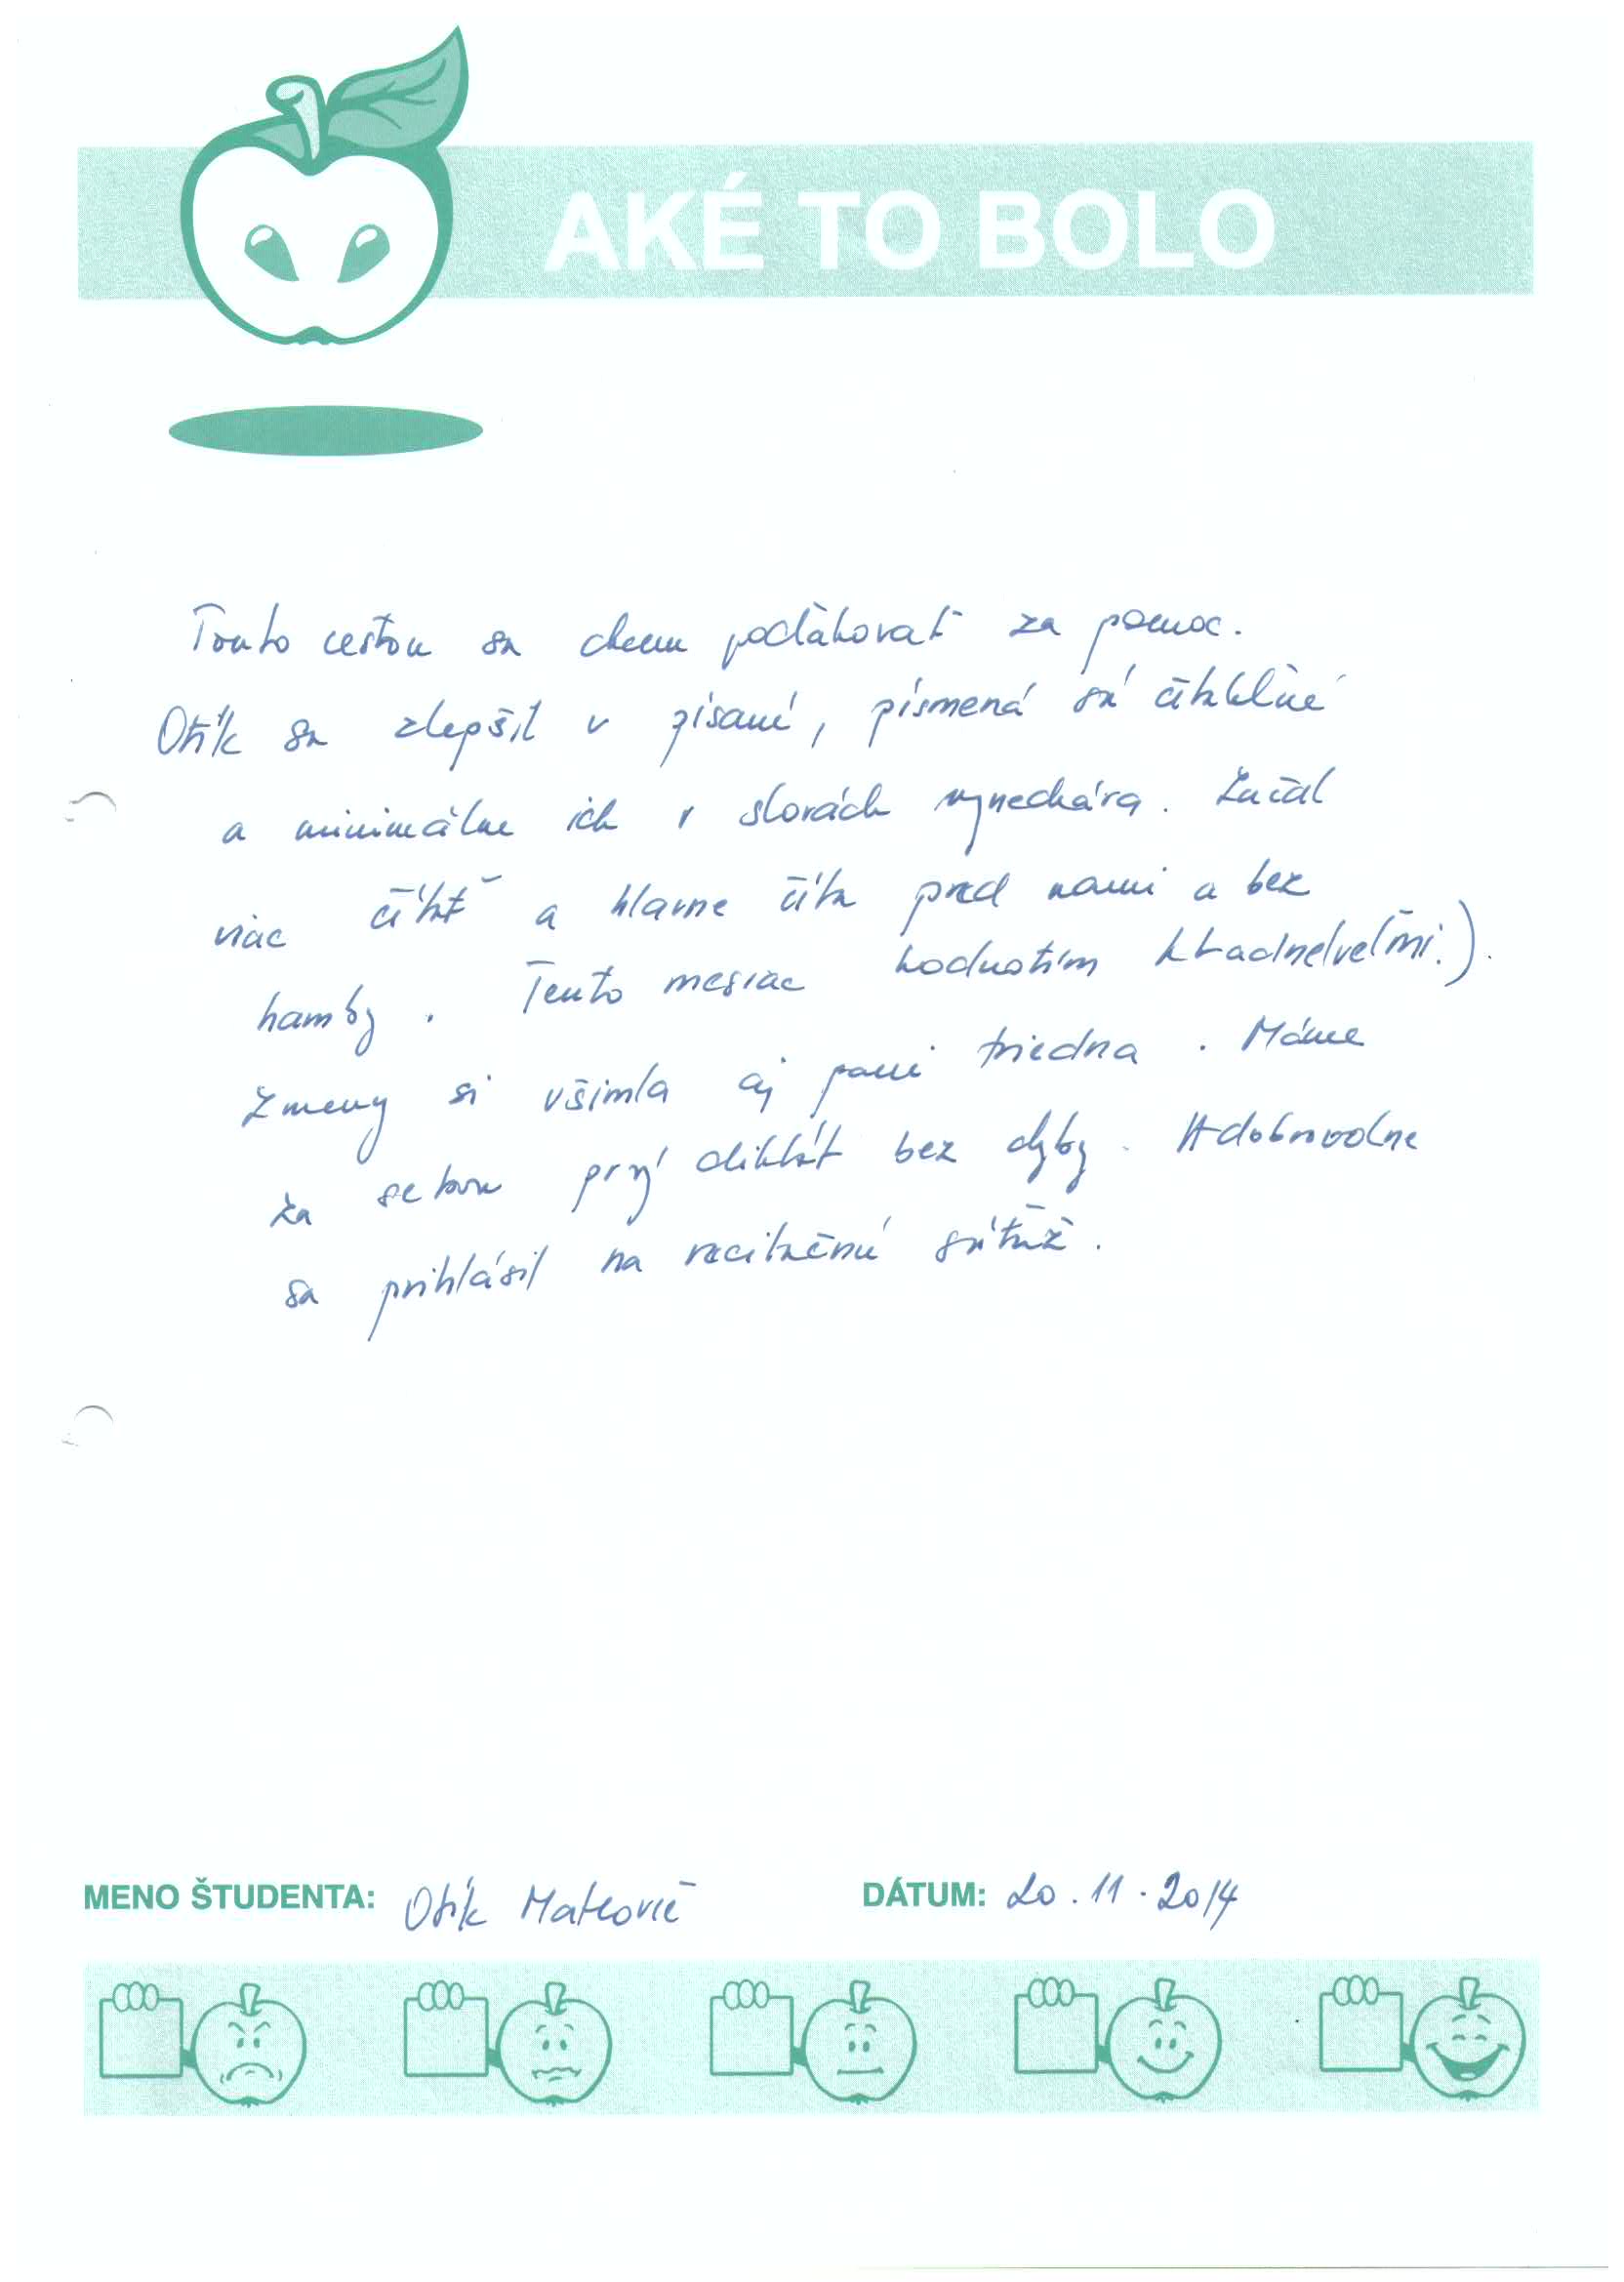 AKÉ TO BOLO
Touto cestou sa chcem poďakovať za pomoc.
Otík sa zlepšil v písaní, písmená sú čitateľné
a minimálne ich v slovách vynecháva. Začal
viac čítať a hlavne číta pred nami a bez
hamby. Tento mesiac hodnotím kladne(veľmi.).
Zmeny si všimla aj pani triedna. Máme
za sebou prvý diktát bez chyby. A dobrovoľne
sa prihlásil na recitačnú súťaž.
MENO ŠTUDENTA: Otík Matkovič DÁTUM: 20.11.2014